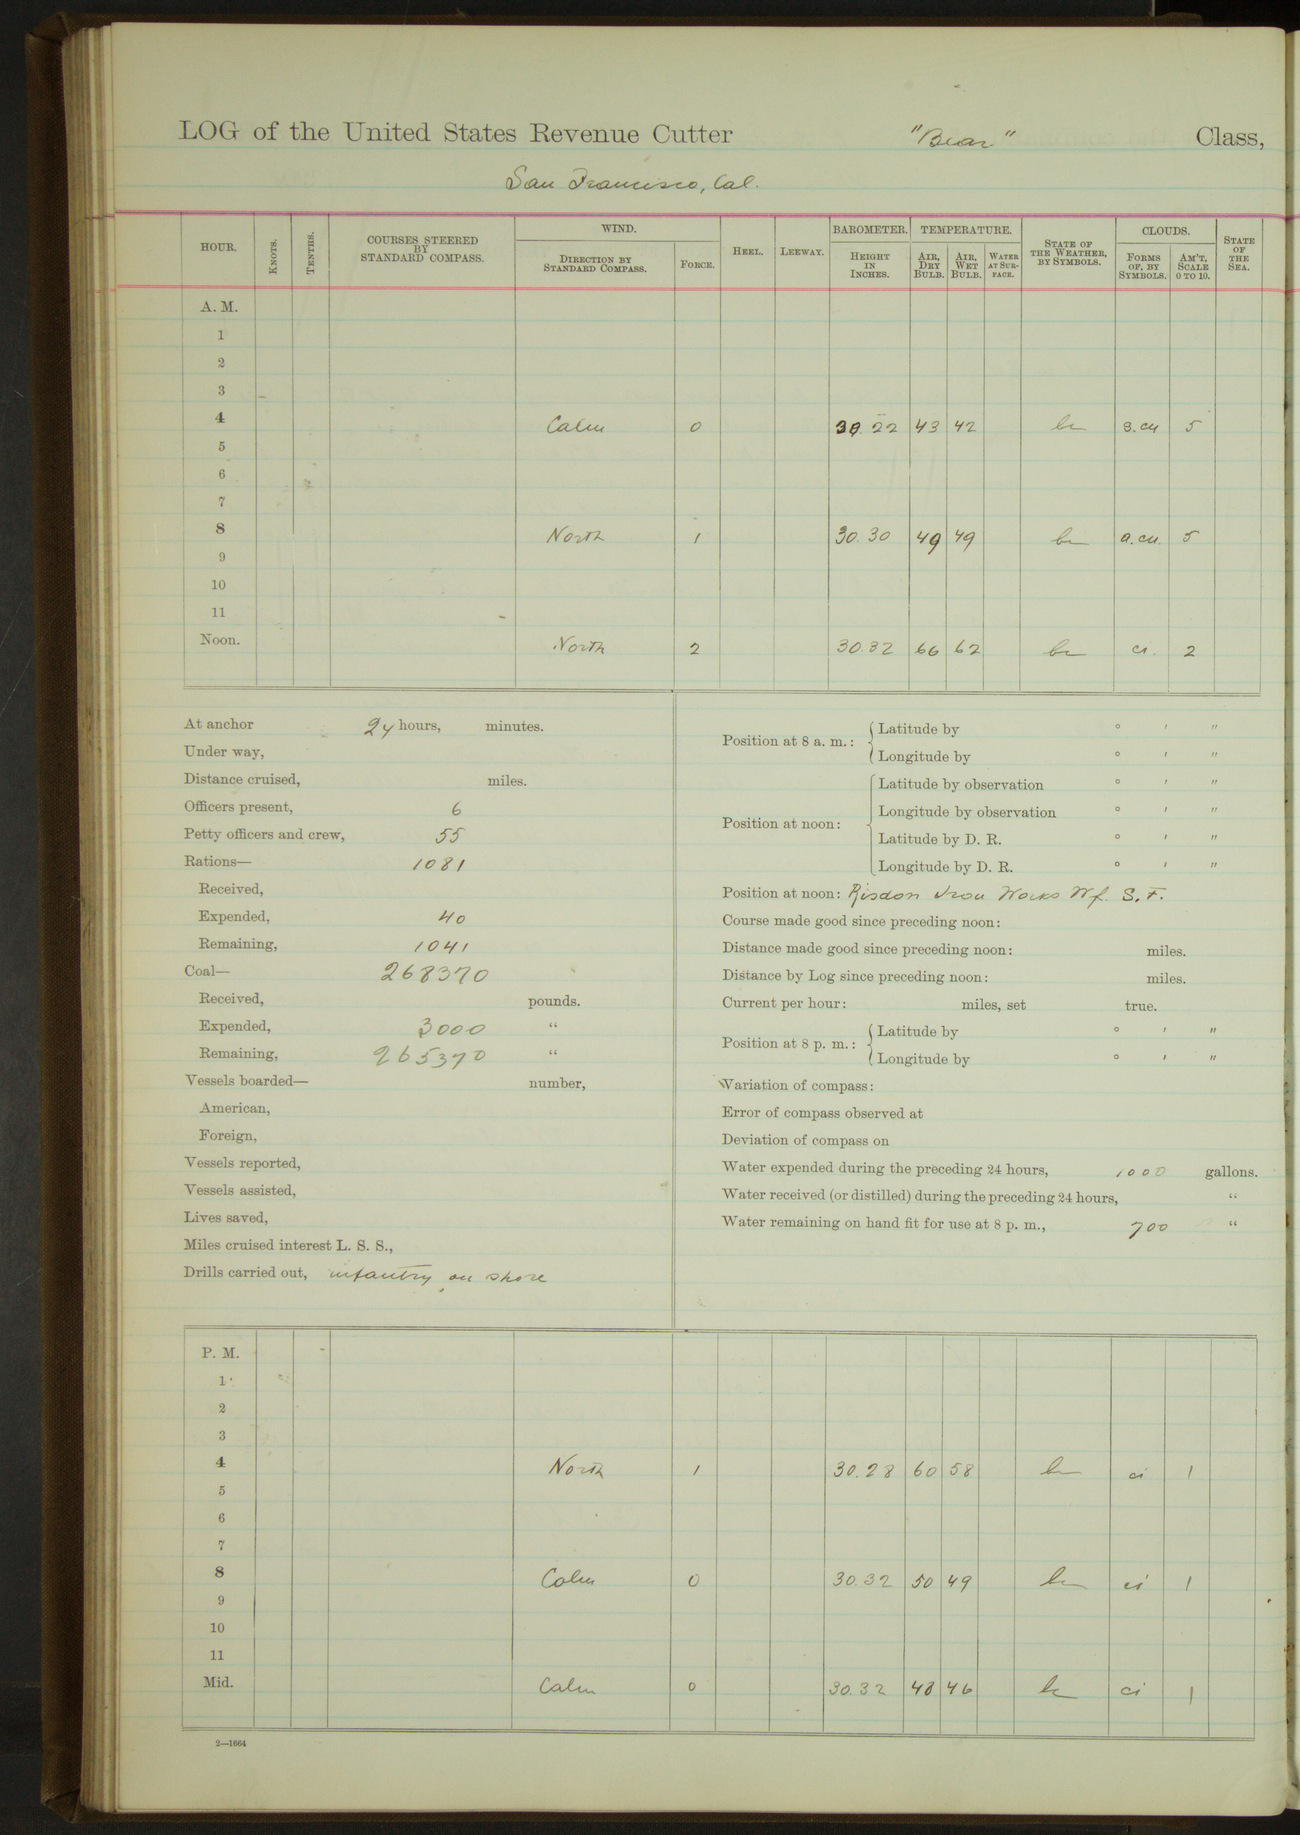 LOG of the United States Revenue Cutter "Bear" Class,
San Francisco, Cal.
HOUR. KNOTS. TENTHS. COURSES STEERED BY STANDARD COMPASS. WIND. DIRECTION BY STANDARD COMPASS. FORCE. HEEL. LEEWAY. BAROMETER. HEIGHT IN INCHES. TEMPERATURE. AIR, DRY BULB. AIR, WET BULB. WATER AT SURFACE. STATE OF THE WEATHER, BY SYMBOLS. CLOUDS. FORMS OF, BY SYMBOLS. AM'T, SCALE 0 TO 10. STATE OF THE SEA.
A. M.
1
2
3
4 Calm 0 30.22 43 42 bc s.cu 5
5
6
7
8 North 1 30.30 49 49 bc a.cu. 5
9
10
11
Noon. North 2 30.32 66 62 bc ci. 2
At anchor 24 hours, minutes.
Under way,
Distance cruised, miles.
Officers present, 6
Petty officers and crew, 55
Rations— 1081
Received,
Expended, 40
Remaining, 1041
Coal— 268370
Received, pounds.
Expended, 3000 "
Remaining, 265370 "
Vessels boarded— number,
American,
Foreign,
Vessels reported,
Vessels assisted,
Lives saved,
Miles cruised interest L. S. S.,
Drills carried out, infantry on shore
Position at 8 a. m.: Latitude by ° ′ ″
Longitude by ° ′ ″
Position at noon: Latitude by observation ° ′ ″
Longitude by observation ° ′ ″
Latitude by D. R. ° ′ ″
Longitude by D. R. ° ′ ″
Position at noon: Risdon Iron Works Wf. S. F.
Course made good since preceding noon:
Distance made good since preceding noon: miles.
Distance by Log since preceding noon: miles.
Current per hour: miles, set true.
Position at 8 p. m.: Latitude by ° ′ ″
Longitude by ° ′ ″
Variation of compass:
Error of compass observed at
Deviation of compass on
Water expended during the preceding 24 hours, 1000 gallons.
Water received (or distilled) during the preceding 24 hours, "
Water remaining on hand fit for use at 8 p. m., 700 "
P. M.
1
2
3
4 North 1 30.28 60 58 bc ci 1
5
6
7
8 Calm 0 30.32 50 49 bc ci 1
9
10
11
Mid. Calm 0 30.32 48 46 bc ci 1
2—1664